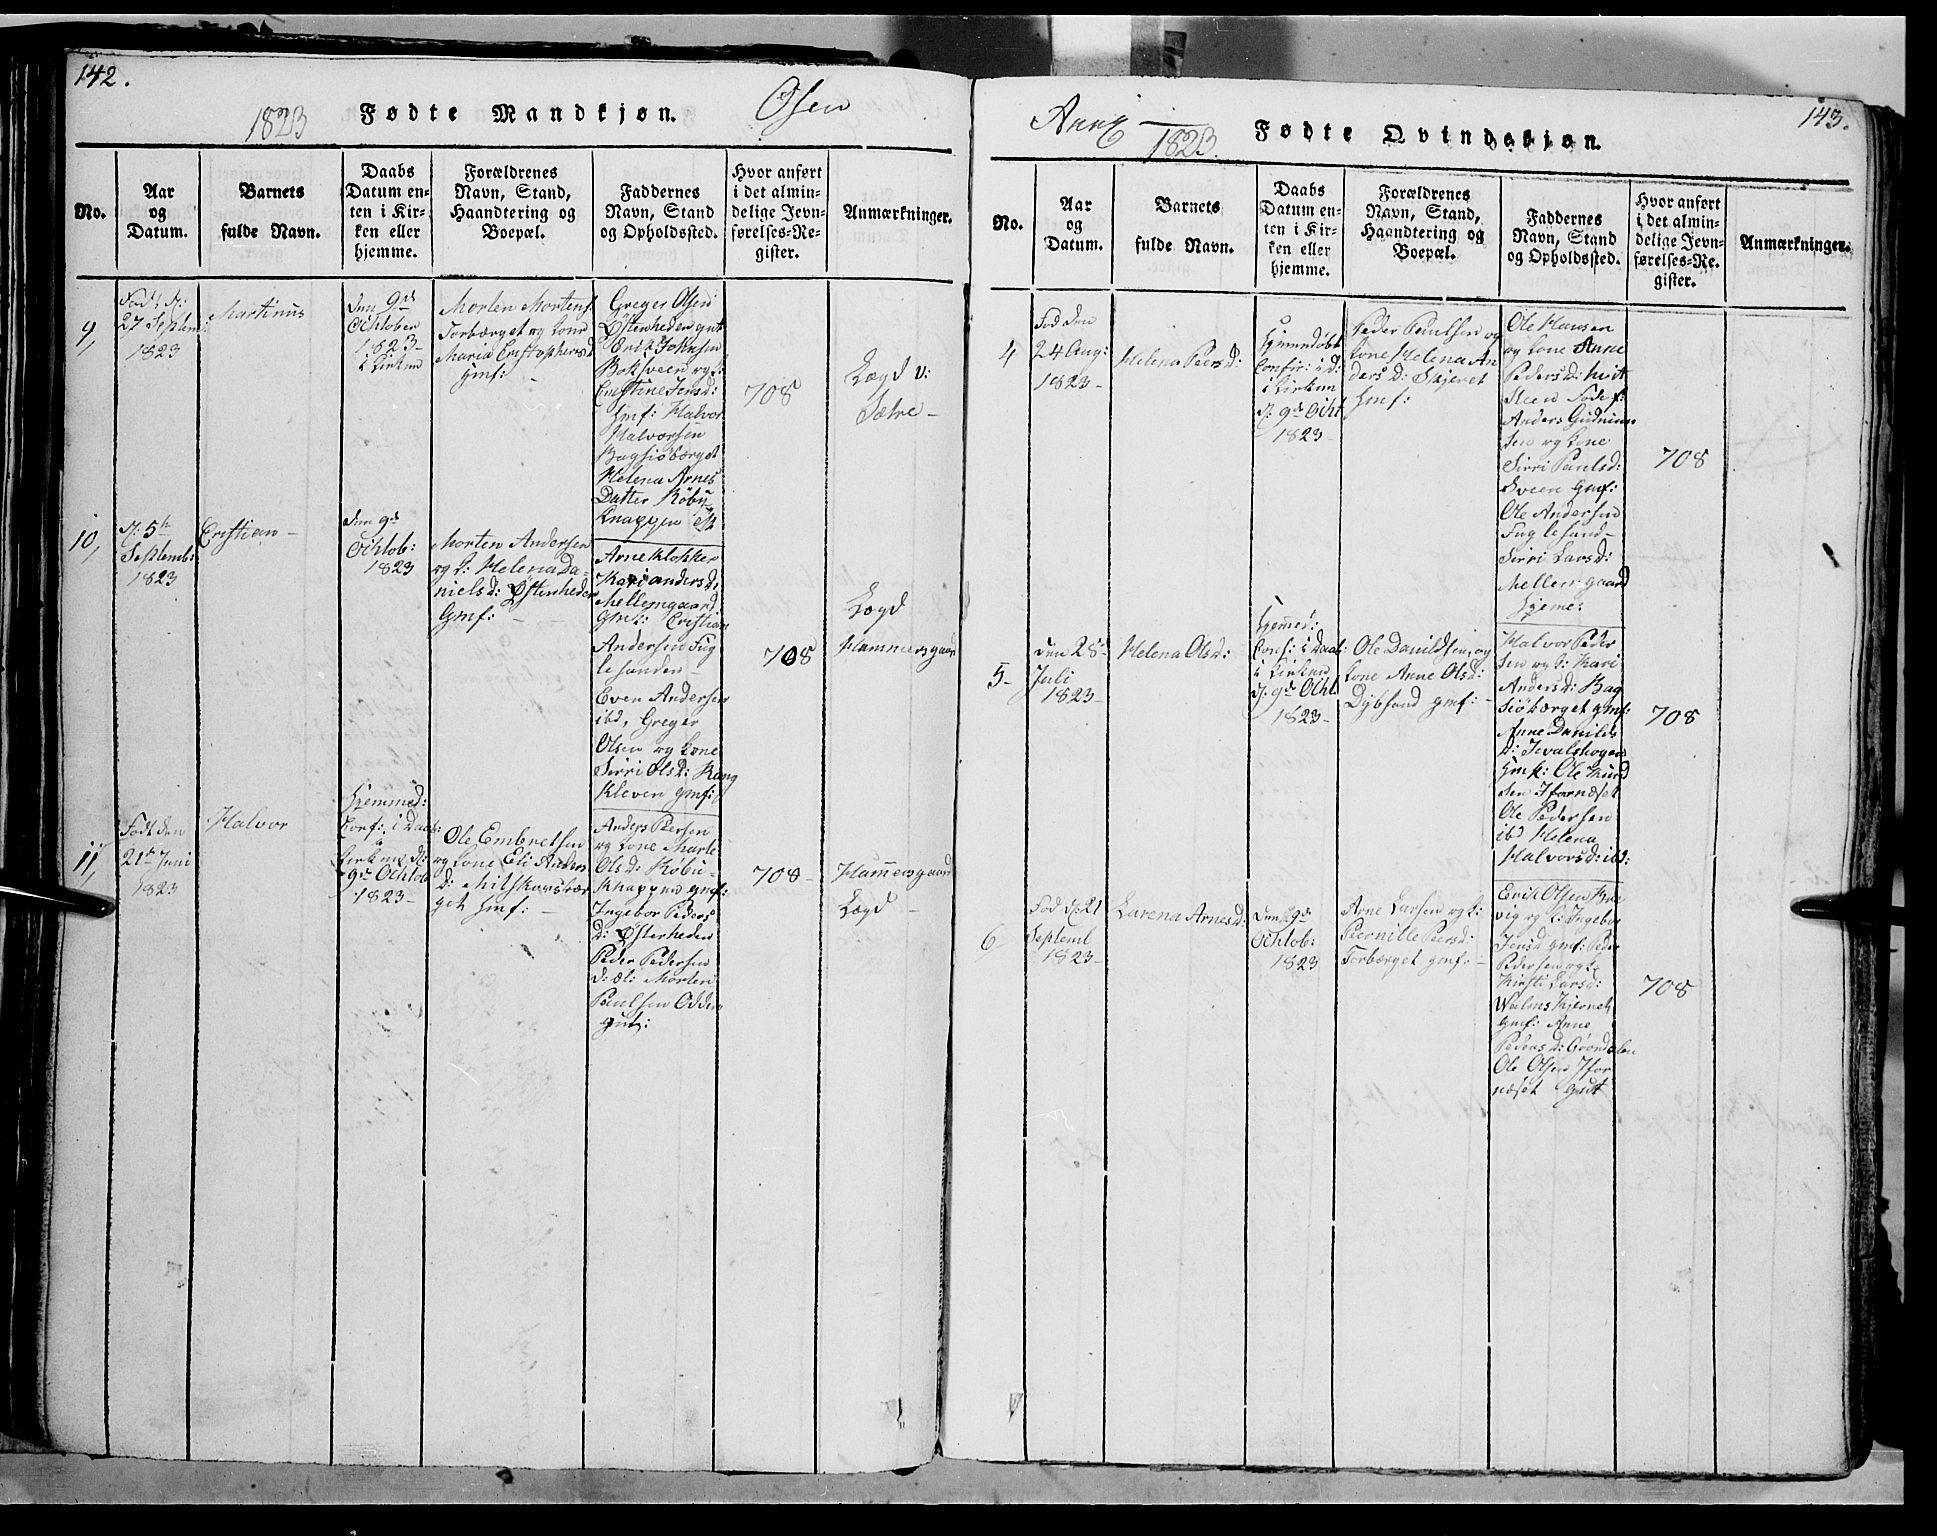 142.
1823 Fødte Mandkjøn. Osen
No.
Aar
og
Datum.
Barnets
fulde Navn.
Daabs
Datum en-
ten i Kir-
ken eller
hjemme.
Forældrenes
Navn, Stand,
Haandtering og
Boepæl.
Faddernes
Navn, Stand
og Opholdssted.
Hvor anført
i det almin-
delige Jevn-
førelses-Re-
gister.
Anmærkninger.
9,
27 Septem:
1823
Martinus
Den 9de
Ochtober
1823-
i Kirken
Morten Mortens:
Torbærget og Kone
Maria Cristophersd
gmf:
Greger Olsen
Østenheden gmt
Erik Johnsen
Cristine Jensd:
gmf: Halvor
Halvorsen
Bagsiöbærget
Helena Arnes
Datter Röbü
Knappen
708
Lægd v:
Sætre-
10,
d: 5te
Septemb:
1823
Cristian-
Den 9de
Ochtob:
1823
Morten Andersen
og K: Helena Da-
nielsd: Østenheden
gmf:
Arne Klokker
Kari Andersd:
Mellemgaard
gmf: Cristian
Andersen Fug
lesanden-
Even Andersen
ibd, Greger
Olsen og Kone
Sirri Olsd: Rang
Kleven gmf:
708
Lægd
Hammersgaard
11,
Født den
21de Juni
1823
Halvor
Hjemmed:
Conf: i Daab:
Kirken d:
9de Ochtob
1823-
Ole Embretsen
og Kone Eli Anders
d:
get gmf:
Anders Peersen
og Kone Marte
Olsd: Röbü-
Knappen gmf:
Ingebor Peders
d: Østerheden
Peder Pedersen
Morten
Paulsen Odden
gmt:
708-
Hammersgaard
Lægd-
143.
Anno 1823. Fødte Qvindekjøn.
No.
Aar
og
Datum.
Barnets
fulde Navn.
Daabs
Datum en-
ten i Kir-
ken eller
hjemme.
Forældrenes
Navn, Stand,
Haandtering og
Boepæl.
Faddernes
Navn, Stand
og Opholdssted.
Hvor anført
i det almin-
delige Jevn-
førelses-Re-
gister.
Anmærkninger.
4
Fød den
24 Aug:
1823-
Helena Peersd:
Hjemmdöbt
Confir: i d:
i Kirken
d: 9de Ocht
1823-
Peder Paulsen og
Kone Helena An
ders d: Skjeret
gmf:
Ole Hansen
og Kone Anne
Pedersd: hvit
Steen
Anders Gudmun
sen og Kone
Sirri Paulsd:
Sveen gmf:
Ole Andersen
Fuglesand-
Sirri Larsd:
Mellemgaard
708
5-
Den 28de
Juli
1823-
Helena Olsd:
Hjemmed:
Conf: i Daab:
i Kirken
d: 9de Ocht
1823-
Ole Danildsen og
Kone Anne Olsd:
Dybsand gmf:-
Halvor Peder
sen og K: Kari
Andersd: Bag
Siöbærget gmf:
Anne Danilds
d:
gmf: Ole Knud
sen Ifarnæset
Ole Pedersen
ibd Helena
Halvorsd: ibd:
708
6
Fød d: 21
Septemb
1823-
Larena Arnesd:
Den 9de
Ochtob:
1823
Arne Larsen og K:
Peernille Peersd:
Torbærget gmf:-
Erik Olsen
vig og K: Ingebor
Jensd gmf: Peder
Pedersen og K:
Kirsti Larsd:
gmf: Anne
Pedersd: Gröndalen
Ole Olsen Ifar
næset gmt
708